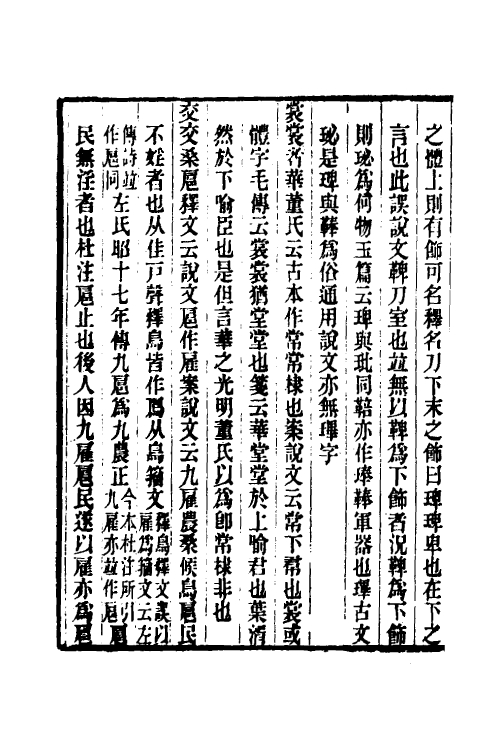 之體上則有飾可名釋名刀下末之飾曰琕琕卑也在下之
言也此誤說文鞞刀室也竝無以鞞爲下飾者況鞞爲下飾
則珌爲何物玉篇云琕與玭同鞛亦作琫鞛軍器也琕古文
珌是琕與鞞爲俗通用說文亦無琕字
裳裳者華董氏云古本作常常棣也案說文云常下帬也裳或
體字毛傳云裳裳猶堂堂也箋云華堂堂於上喻君也葉湑
然於下喻臣也是但言華之光明董氏以爲卽常棣非也
交交桑扈釋文云說文扈作雇案說文云九雇農桑候鳥扈民
不婬者也从隹戸聲釋鳥皆作鳸从鳥籀文釋鳥釋文誤以雇爲籀文云左
傳詩竝作扈同左氏昭十七年傳九扈爲九農正今本杜注所引九雇亦竝作扈
民無淫者也杜注扈止也後人因九雇扈民遂以雇亦爲扈